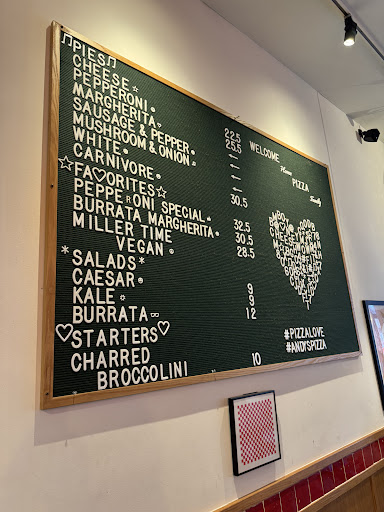 ♫PIES♫
CHEESE☆ 22.5
PEPPERONI 25.5
MARGHERITA ←
SAUSAGE & PEPPER ←
MUSHROOM & ONION ←
WHITE ←
CARNIVORE 30.5
☆FA♡ORITES☆
PEPPERONI SPECIAL 32.5
BURRATA MARGHERITA 30.5
MILLER TIME 28.5
VEGAN
*SALADS*
CAESAR 9
KALE 9
BURRATA 12
♡STARTERS♡
CHARRED
BROCCOLINI 10
WELCOME
PIZZA
Family
#PIZZALOVE
#ANDYSPIZZA